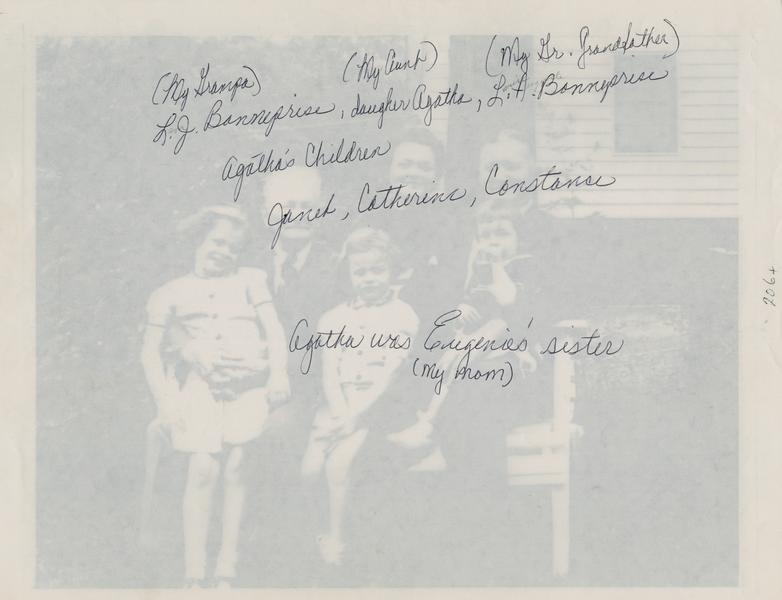 (My Grampa) (My Aunt) (My Gr. Grandfather)
L.J. Bonneprise, daugher Agatha, L.A. Bonneprise
Agatha's Children
Janet, Catherine, Constance
Agatha was Eugenia's sister
(My Mom)
206+